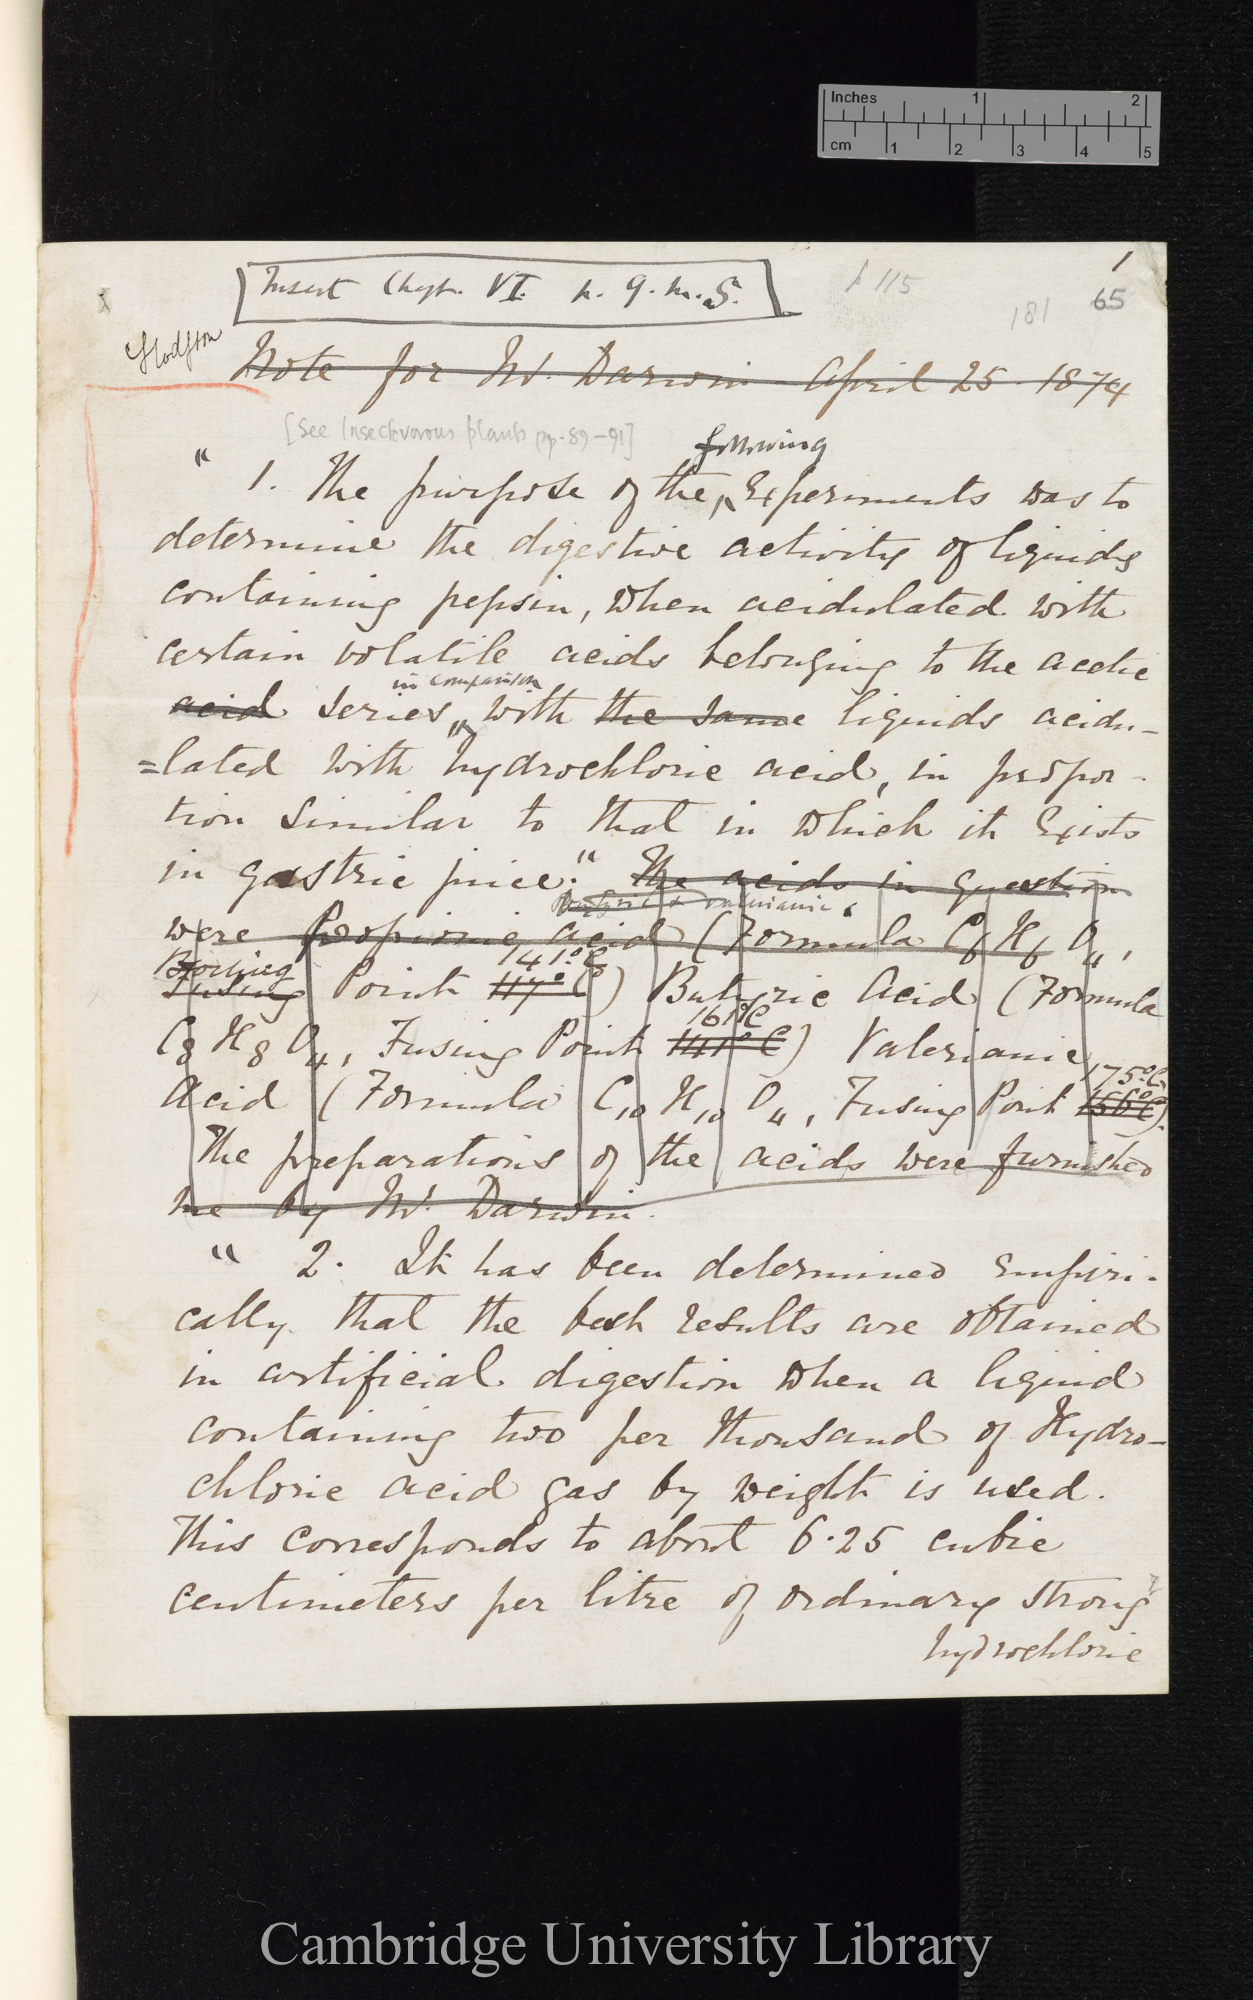 Inches 1 2
cm 1 2 3 4 5
1
Insert Chapt. VI. p. 9. M.S.
p 115
181 65
Note for Mr. Darwin April 25 1874
[See Insectivorous plants pp. 89-91]
following
" 1. The purpose of the Experiments was to
determine the digestive activity of liquids
containing pepsin, when acidulated with
certain volatile acids belonging to the acetic
in comparison
acid series with the same liquids acidu-
=lated with hydrochloric acid, in propor-
tion similar to that in which it Exists
in gastric juice." The acids in question
butyric & valerianic.
were Propionic acid (Formula C6 H6 O4,
Boiling 141° C
Fusing Point 117° C) Butyric Acid (Formula
161° C
C8 H8 O4, Fusing Point 141° C) Valerianic
175° C
Acid (Formula C10 H10 O4, Fusing Point 156° C).
The preparations of the acids were furnished
me by Mr. Darwin.
" 2. It has been determined Empiri-
cally that the best results are obtained
in artificial digestion when a liquid
containing two per thousand of Hydro-
chloric acid gas by weight is used.
This corresponds to about 6.25 cubic
centimeters per litre of ordinary strong
hydrochloric
Cambridge University Library